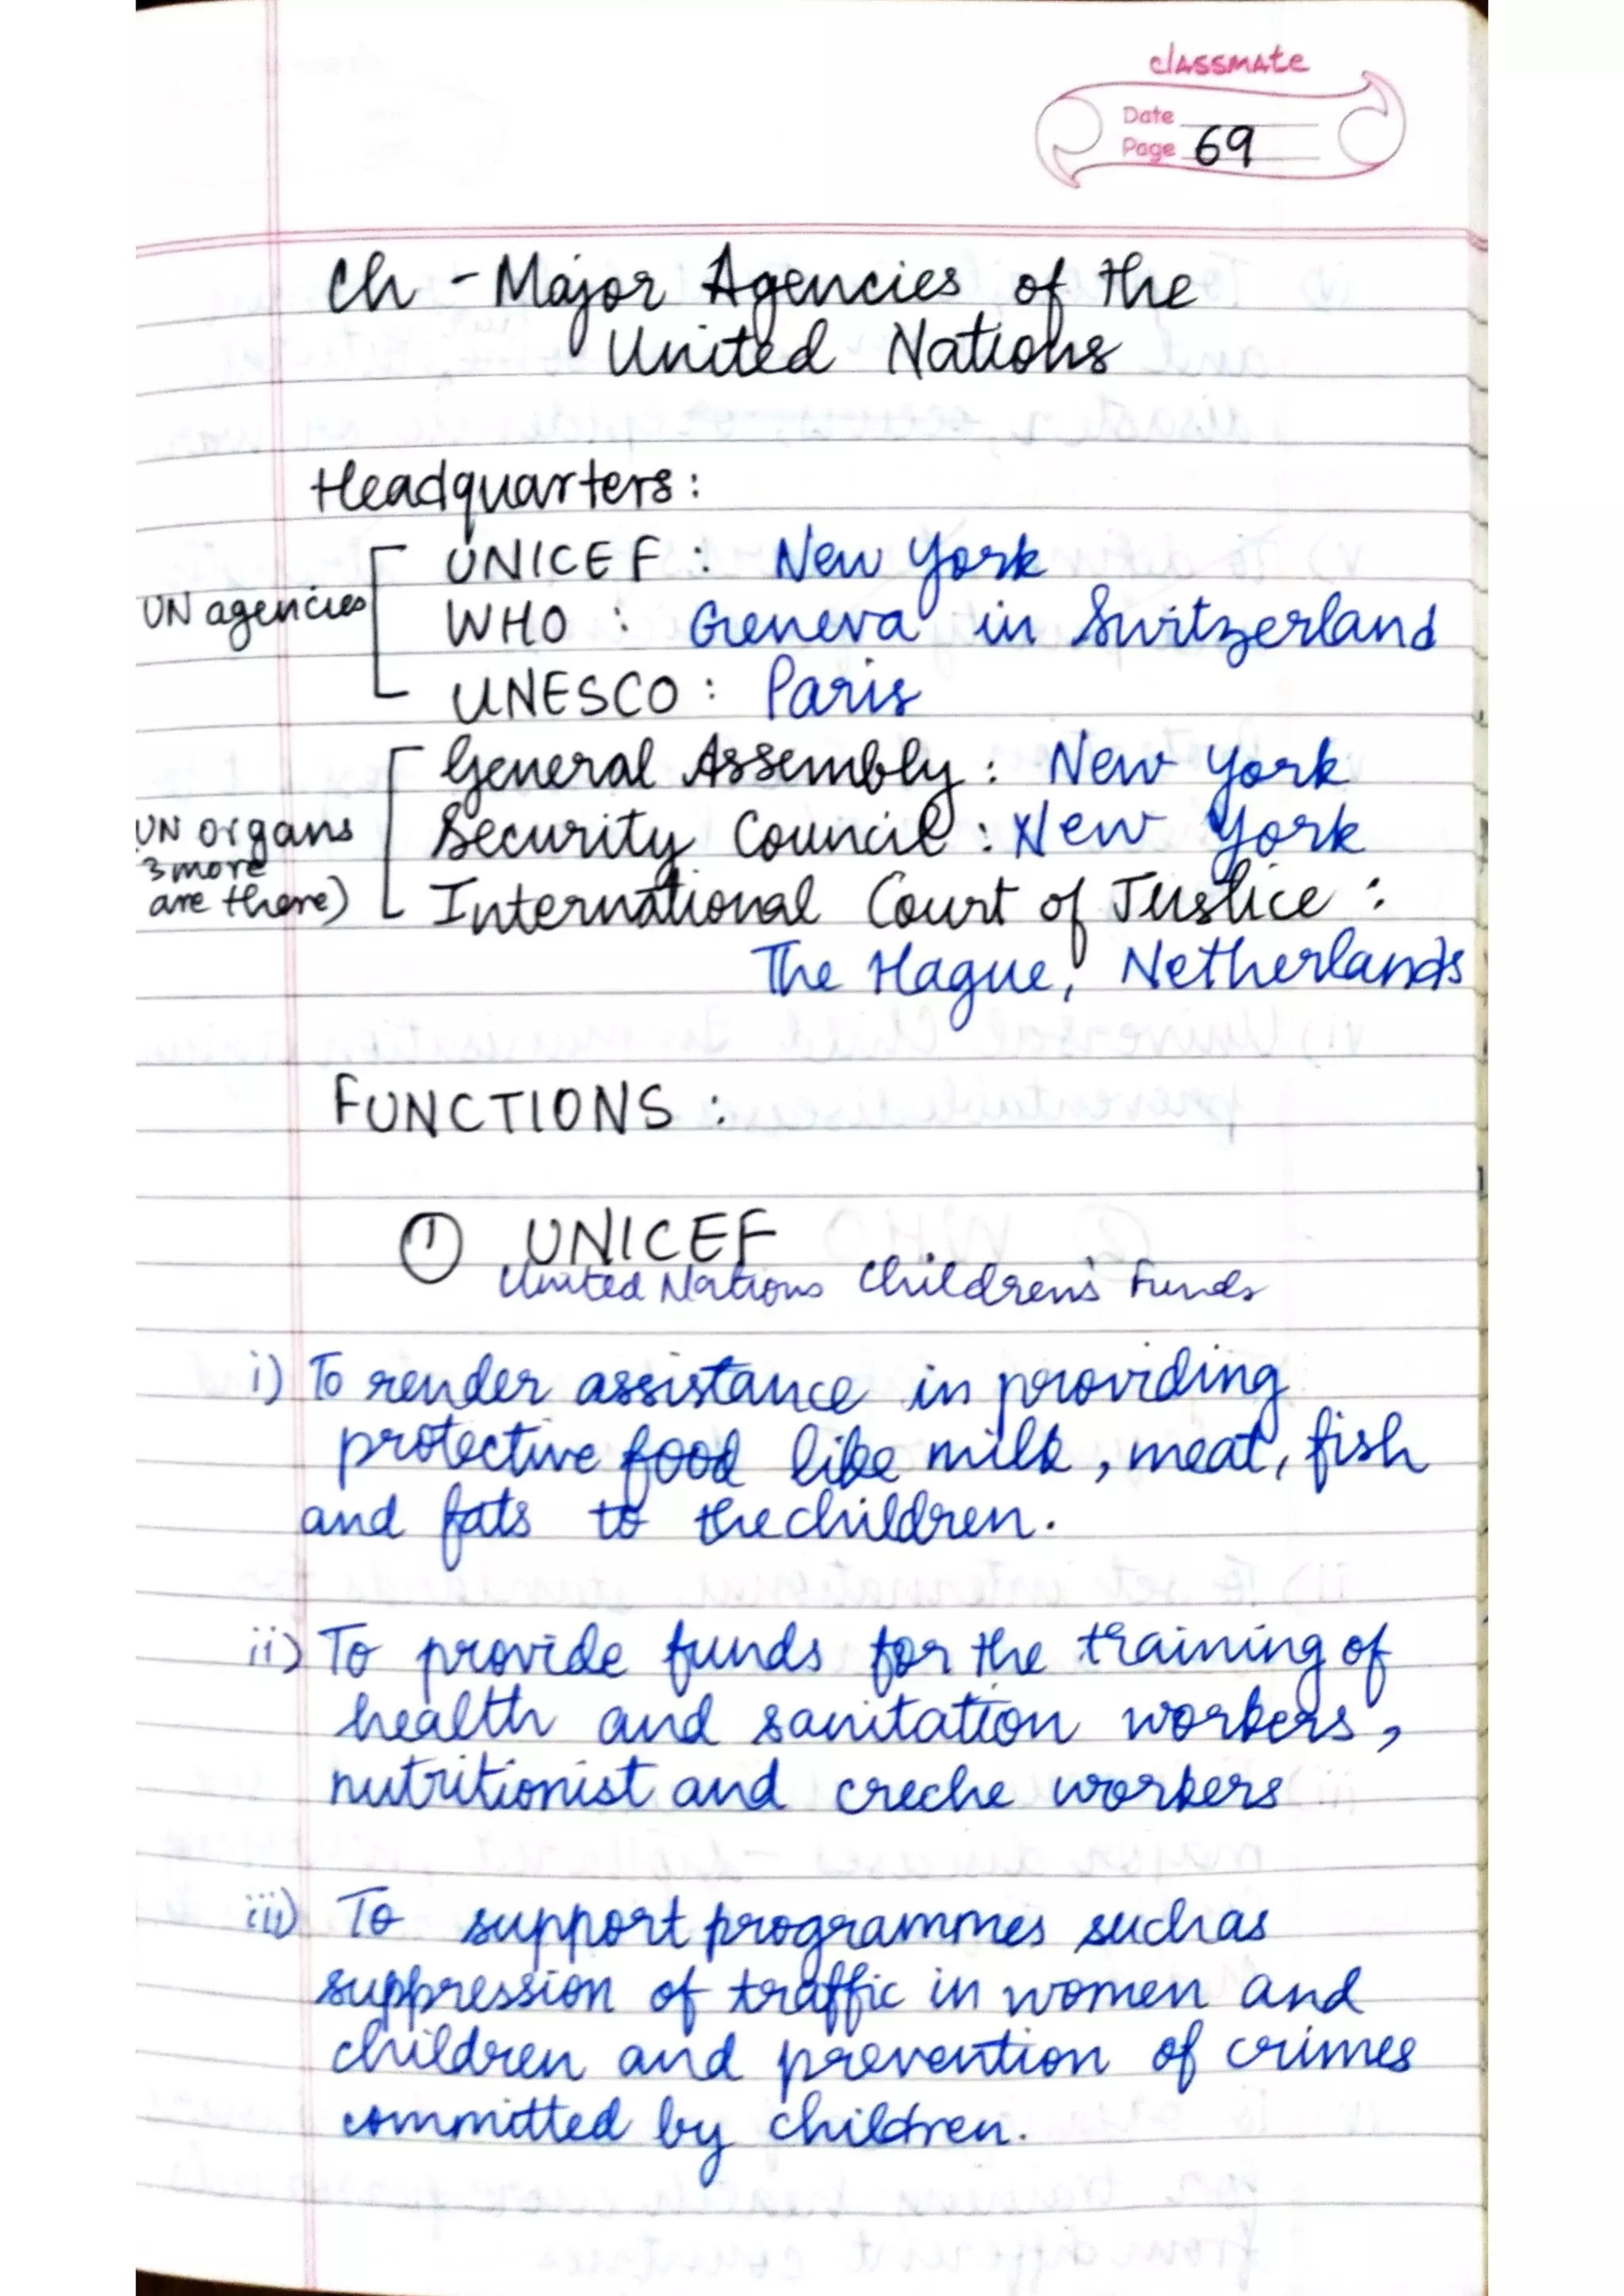 classmate
Date
Page 69
Ch - Major Agencies of the
United Nations
Headquarters:
UN agencies
UNICEF : New York
WHO : Geneva in Switzerland
UNESCO : Paris
UN organs
3 more
are there)
General Assembly : New York
Security Council : New York
International Court of Justice :
The Hague, Netherlands
FUNCTIONS :
① UNICEF
United Nations Children's Funds
i) To render assistance in providing
protective food like milk, meat, fish
and fats to the children.
ii) To provide funds for the training of
health and sanitation workers,
nutritionist and creche workers
iii) To support programmes such as
suppression of traffic in women and
children and prevention of crimes
committed by children.